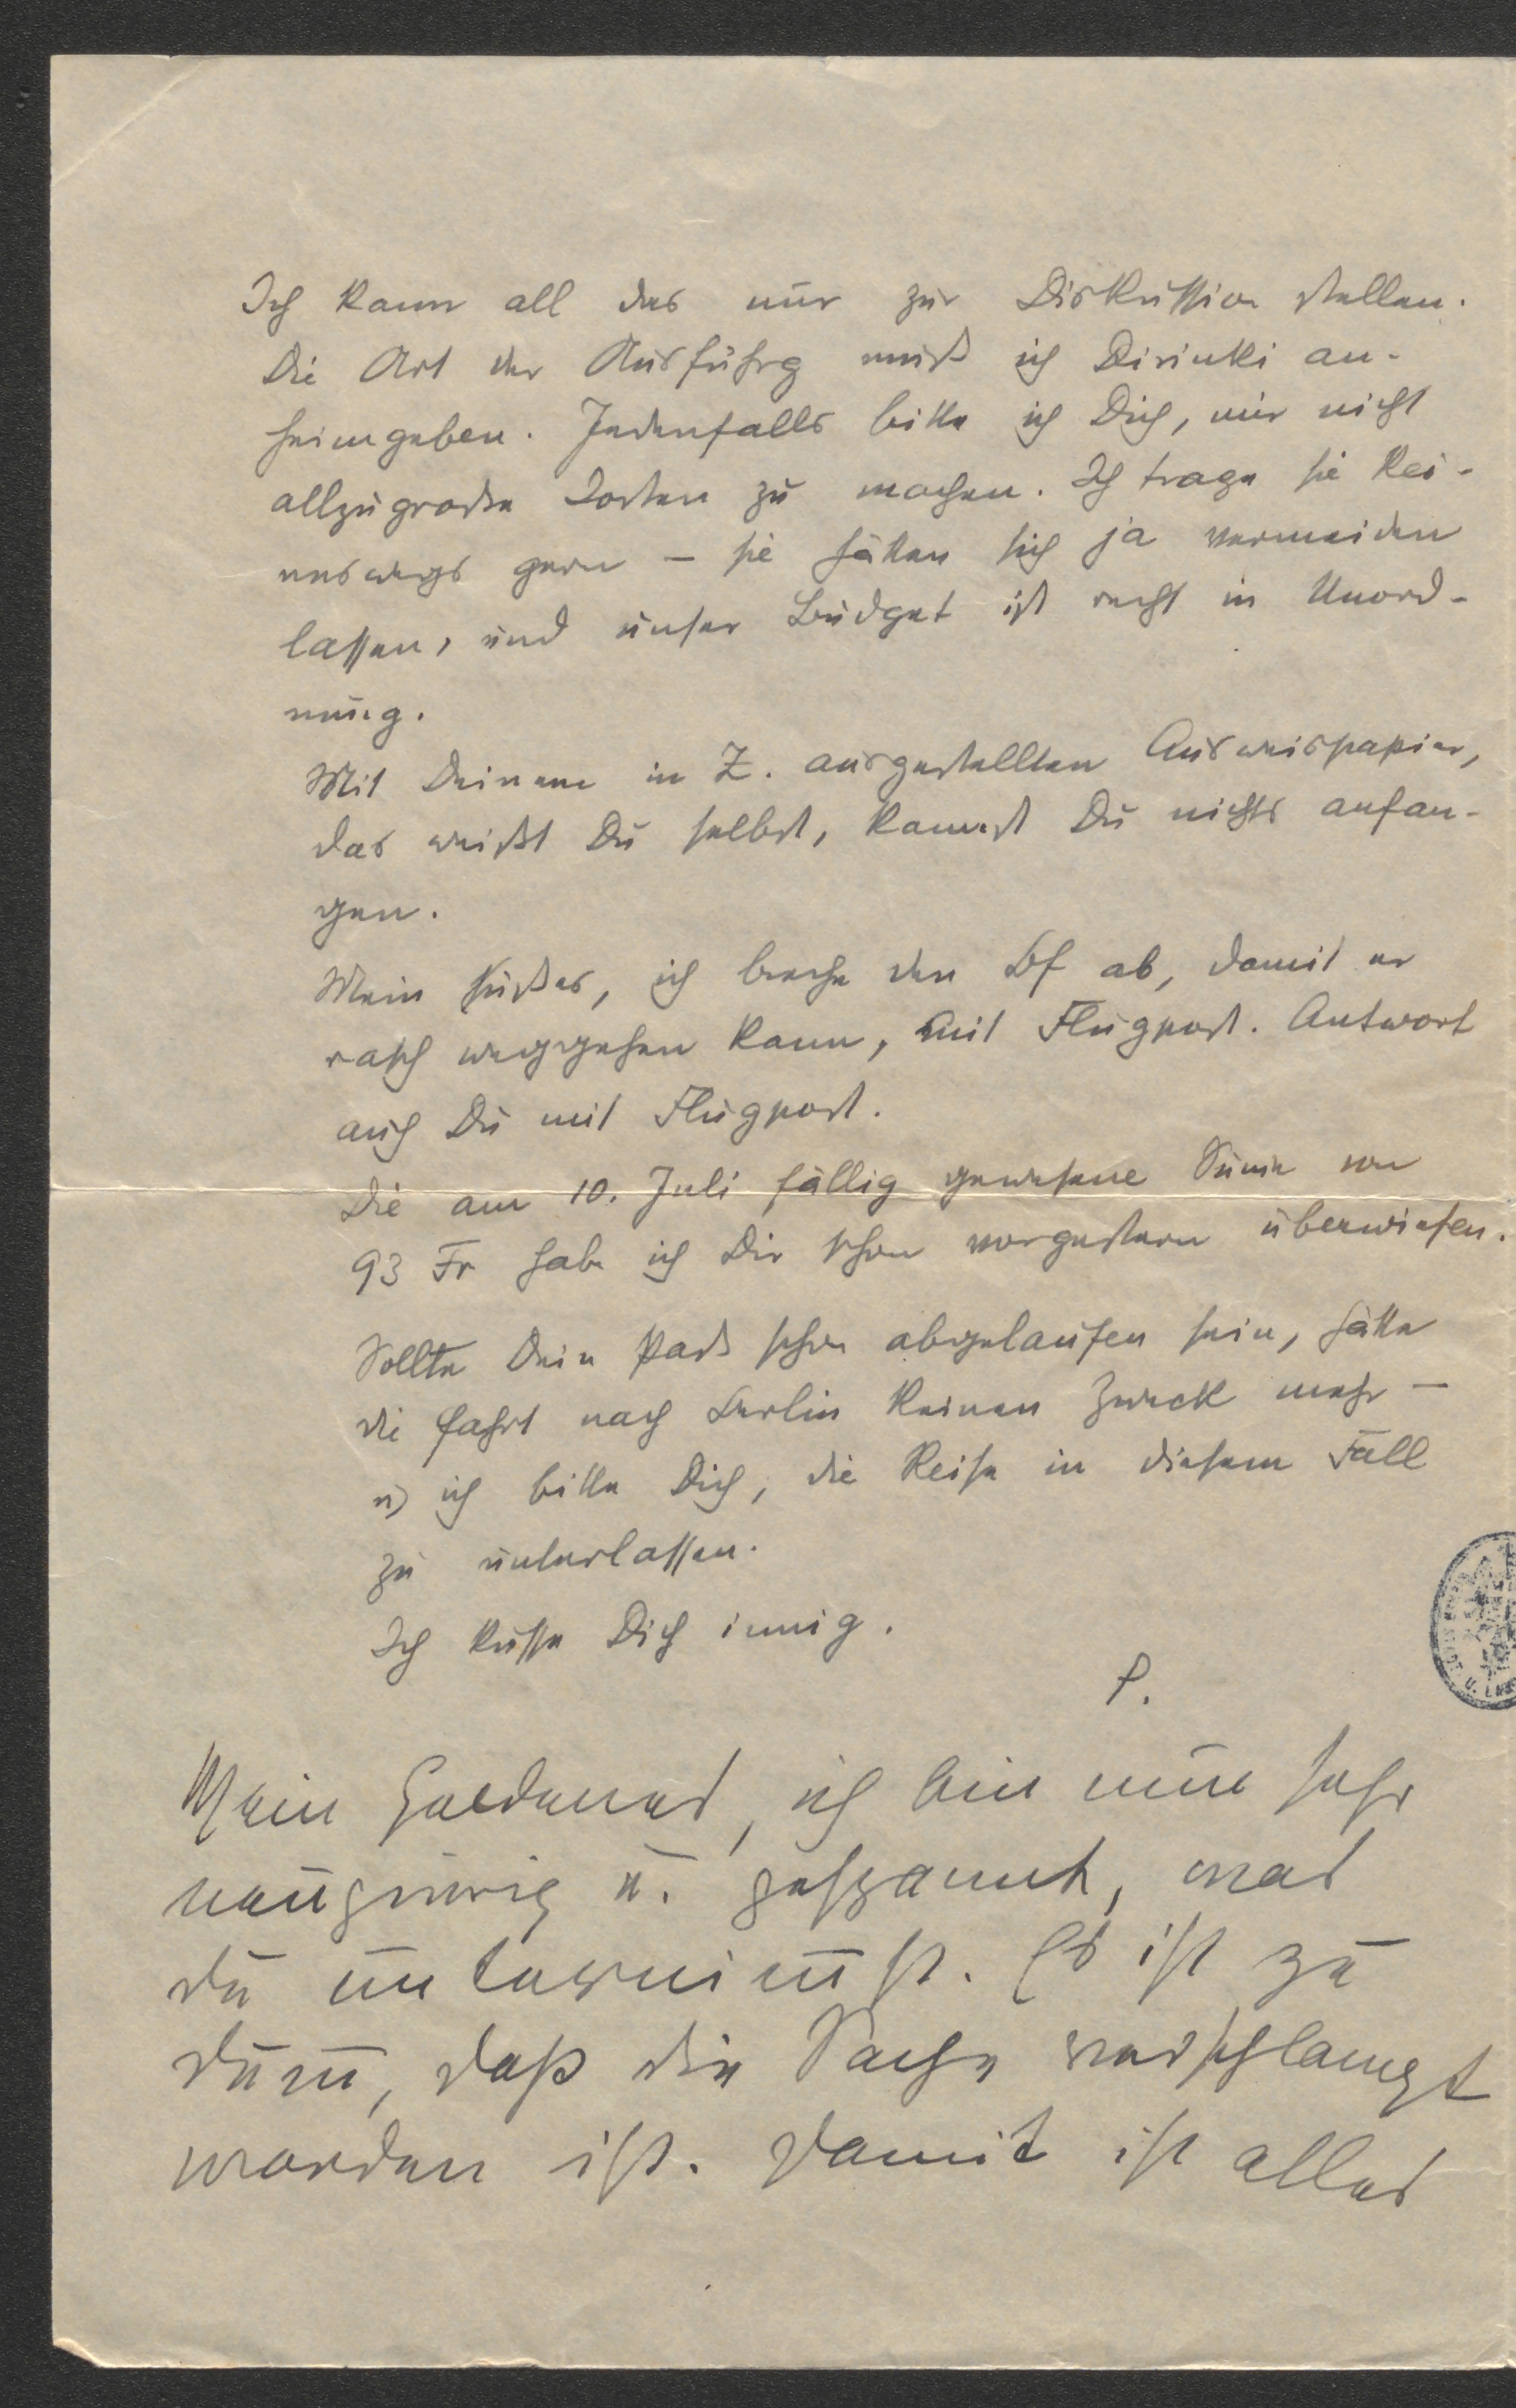 Ich kann all das nur zur Diskussion stellen.
Die Art der Ausführg muß ich Dirinkli an-
heimgeben. Jedenfalls bitte ich Dich, mir nicht
allzugroße Kosten zu machen. Ich trage sie kei-
neswegs gern – sie hätten sich ja vermeiden
lassen, und unser Budget ist recht in Unord-
nung.
Mit Deinem in Z. ausgestellten Ausweispapier,
das weißt Du selbst, kannst Du nichts anfan-
gen.
Mein Süßes, ich breche den Bf ab, damit er
rasch weggehen kann, mit Flugpost. Antwort
auch Du mit Flugpost.
Die am 10. Juli fällig gewesene Sum̄e von
93 Fr habe ich Dir schon vorgestern überwiesen.
Sollte Dein Paß schon abgelaufen sein, hätte
die Fahrt nach Berlin keinen Zweck mehr –
u) ich bitte Dich, die Reise in diesem Fall
zu unterlassen.
Ich küsse Dich innig.
P.
Mein Goldenes, ich bin nun sehr
neugierig u. gespannt, was
du unternim̄st. Es ist zu
dum̄, daß die Sache verschlampt
worden ist. Damit ist alles